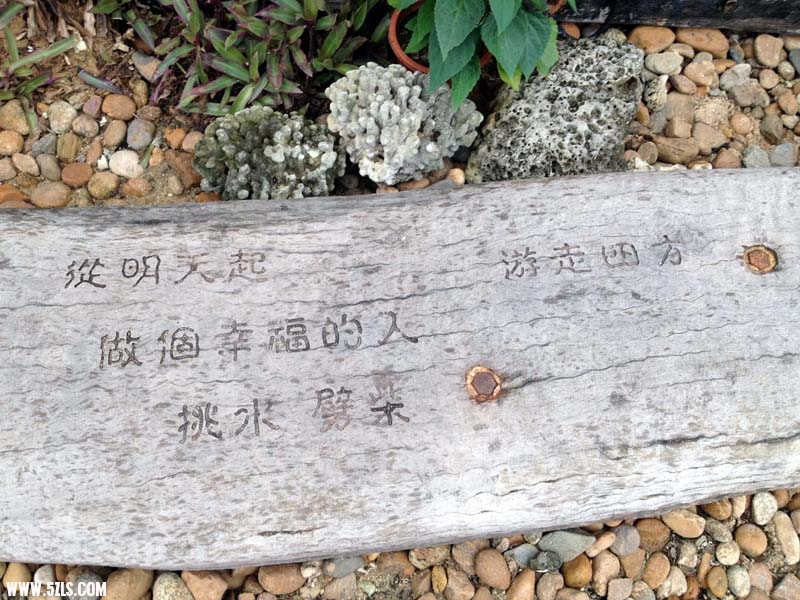 從明天起
做個幸福的人
挑水 劈柴
游走四方
WWW.5ZLS.COM